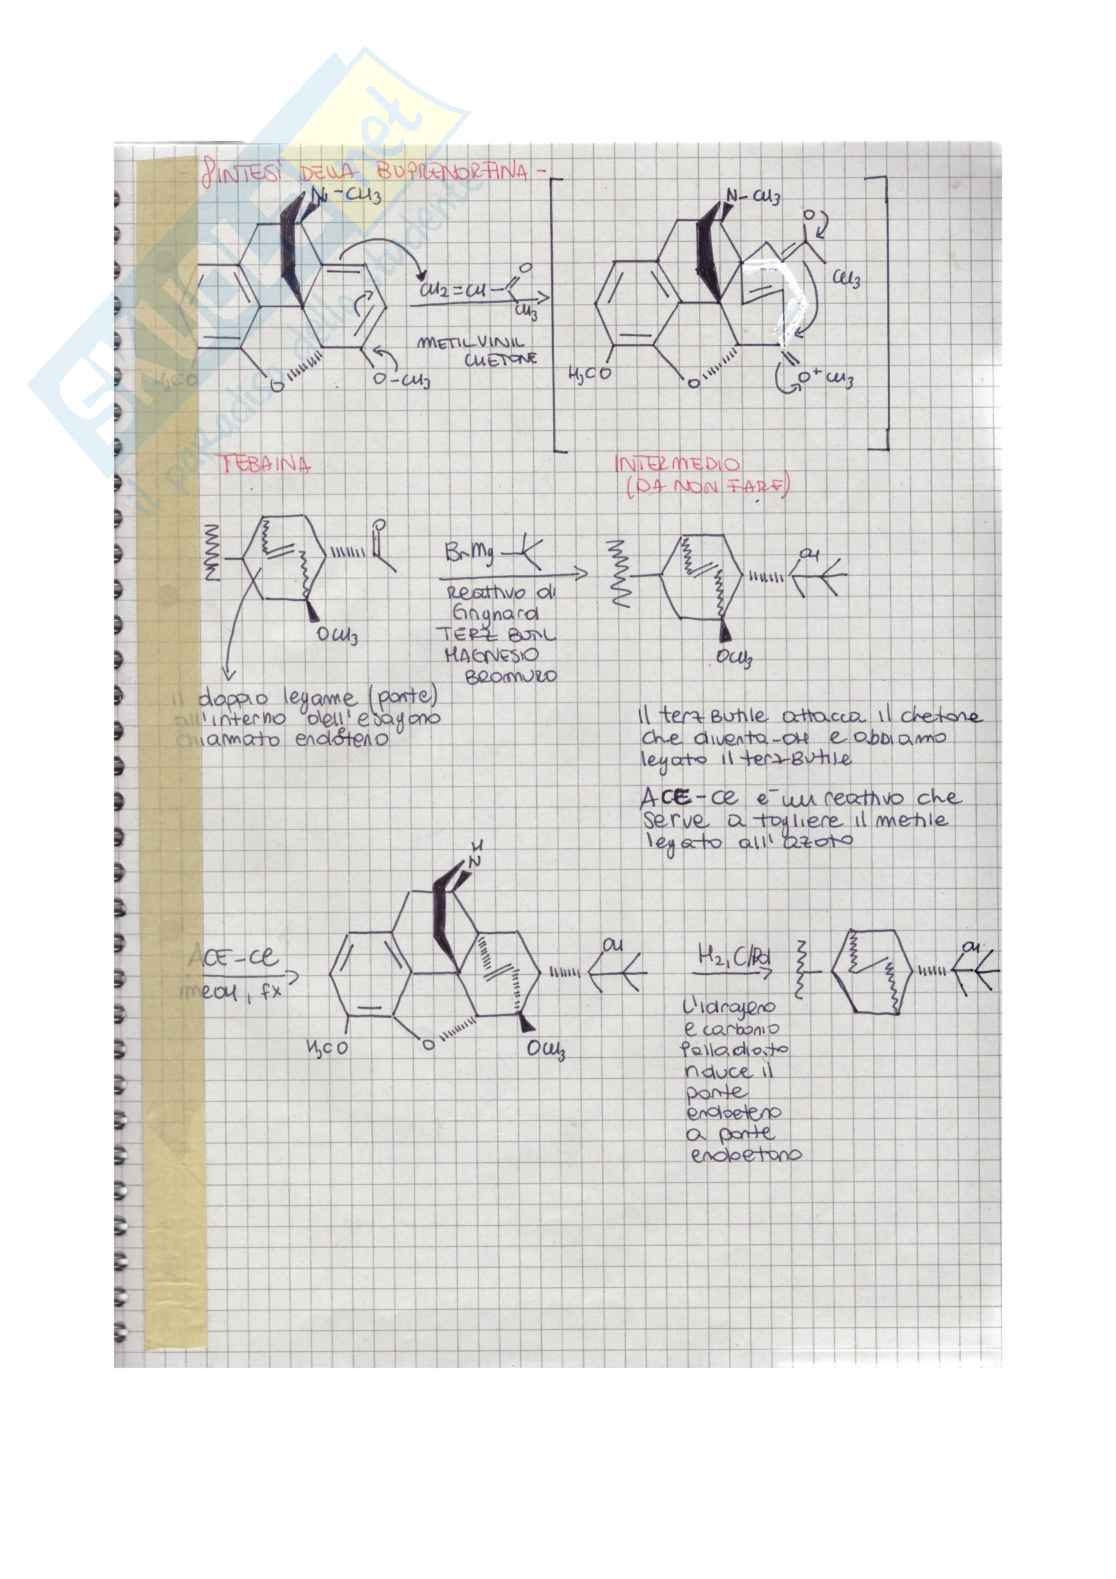 - SINTESI DELLA BUPRENORFINA -
N-CH3
N-CH3
O
CH3
CH2=CH-
O
CH3
METILVINIL
CHETONE
H3CO
O
O-CH3
H3CO
O
O+ CH3
TEBAINA
INTERMEDIO
(DA NON FARE)
O
OCH3
BrMg
reattivo di
Grignard
TERZ BUTIL
MAGNESIO
BROMURO
OH
OCH3
il doppio legame (ponte)
all'interno dell'esagono
chiamato endoteno
Il terzButile attacca il chetone
che diventa -OH e abbiamo
legato il terzButile
ACE-Cl è un reattivo che
serve a togliere il metile
legato all'azoto
ACE-Cl
MeOH, fx
H
N
OH
H3CO
O
OCH3
H2, C/Pd
L'idrogeno
e carbonio
Palladiato
riduce il
ponte
endoeteno
a ponte
endoetano
OH
SKUOLA.net
il paradiso dello studente